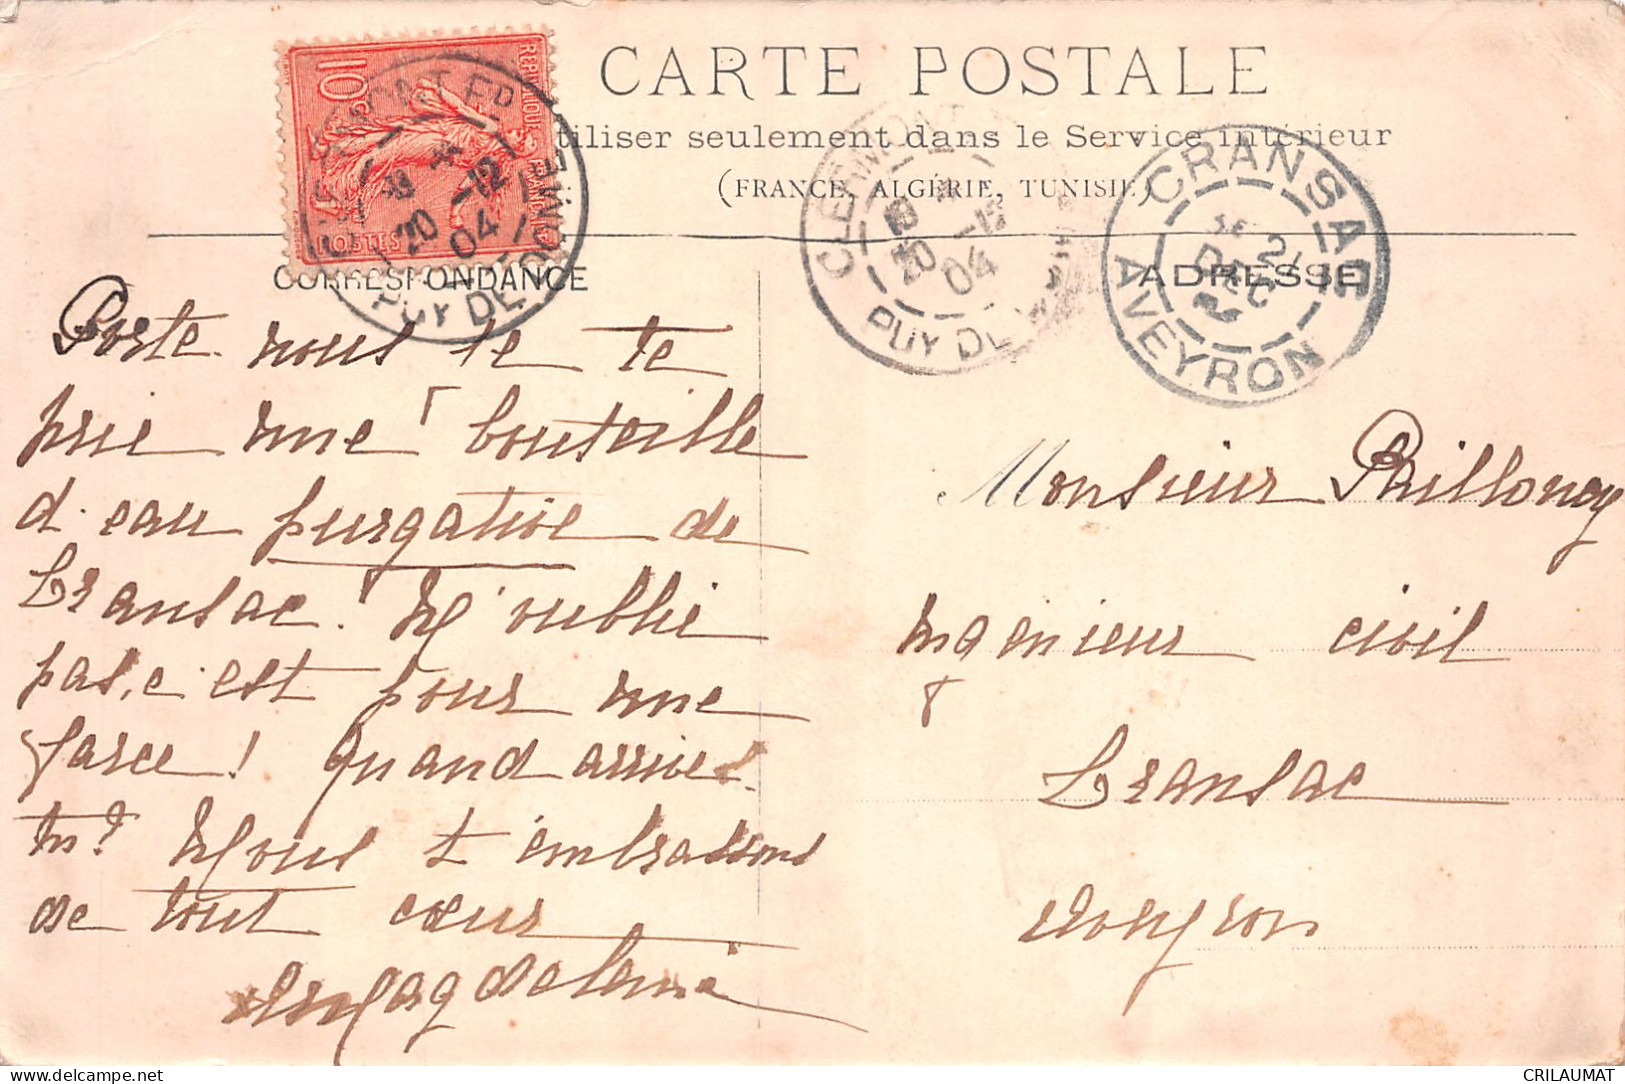 CARTE POSTALE
tiliser seulement dans le Service intérieur
(FRANCE, ALGÉRIE, TUNISIE)
REPUBLIQUE FRANÇAISE
10 c
POSTES
20 -12
04
PUY DE DOME
CLERMONT
20 -12
04
PUY DE
CRANSAC
21
DEC
AVEYRON
CORRESPONDANCE
ADRESSE
Porte nous le te
prie une bouteille
d'eau purgative de
Cransac! N'oublie
pas, c'est pour une
farce! Quand arrives
tu? Nous t'embrassons
de tout cœur
Magdeleine
Monsieur Pailloncy
Ingénieur civil
à
Cransac
Aveyron
CRILAUMAT